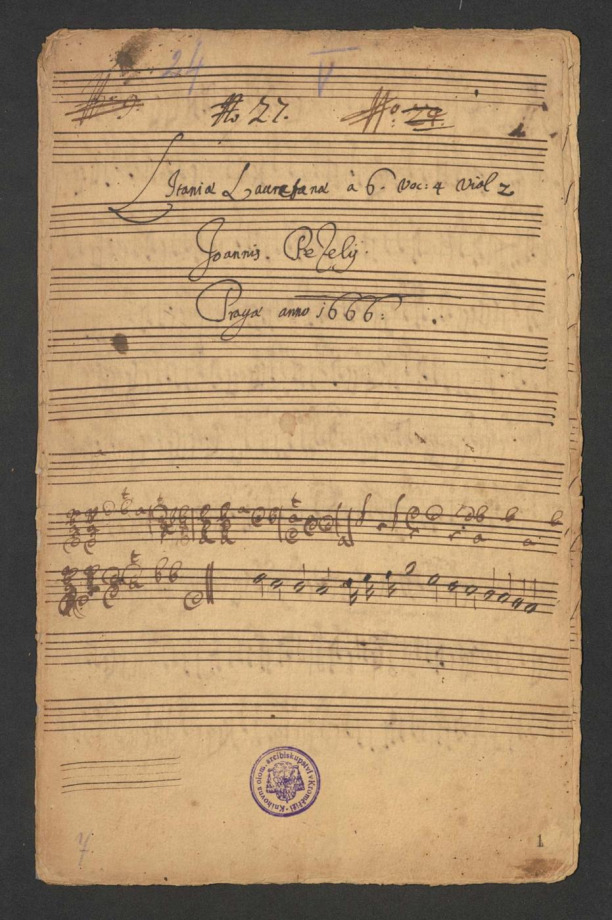 24 V
No 27. No. 29.
Litaniæ Lauretanæ à 6. Voc: 4 Viol 2
Joannis. Pezelij.
Praga anno 1666:
Knihovna olom. arcibiskupství v Kroměříži
7 1